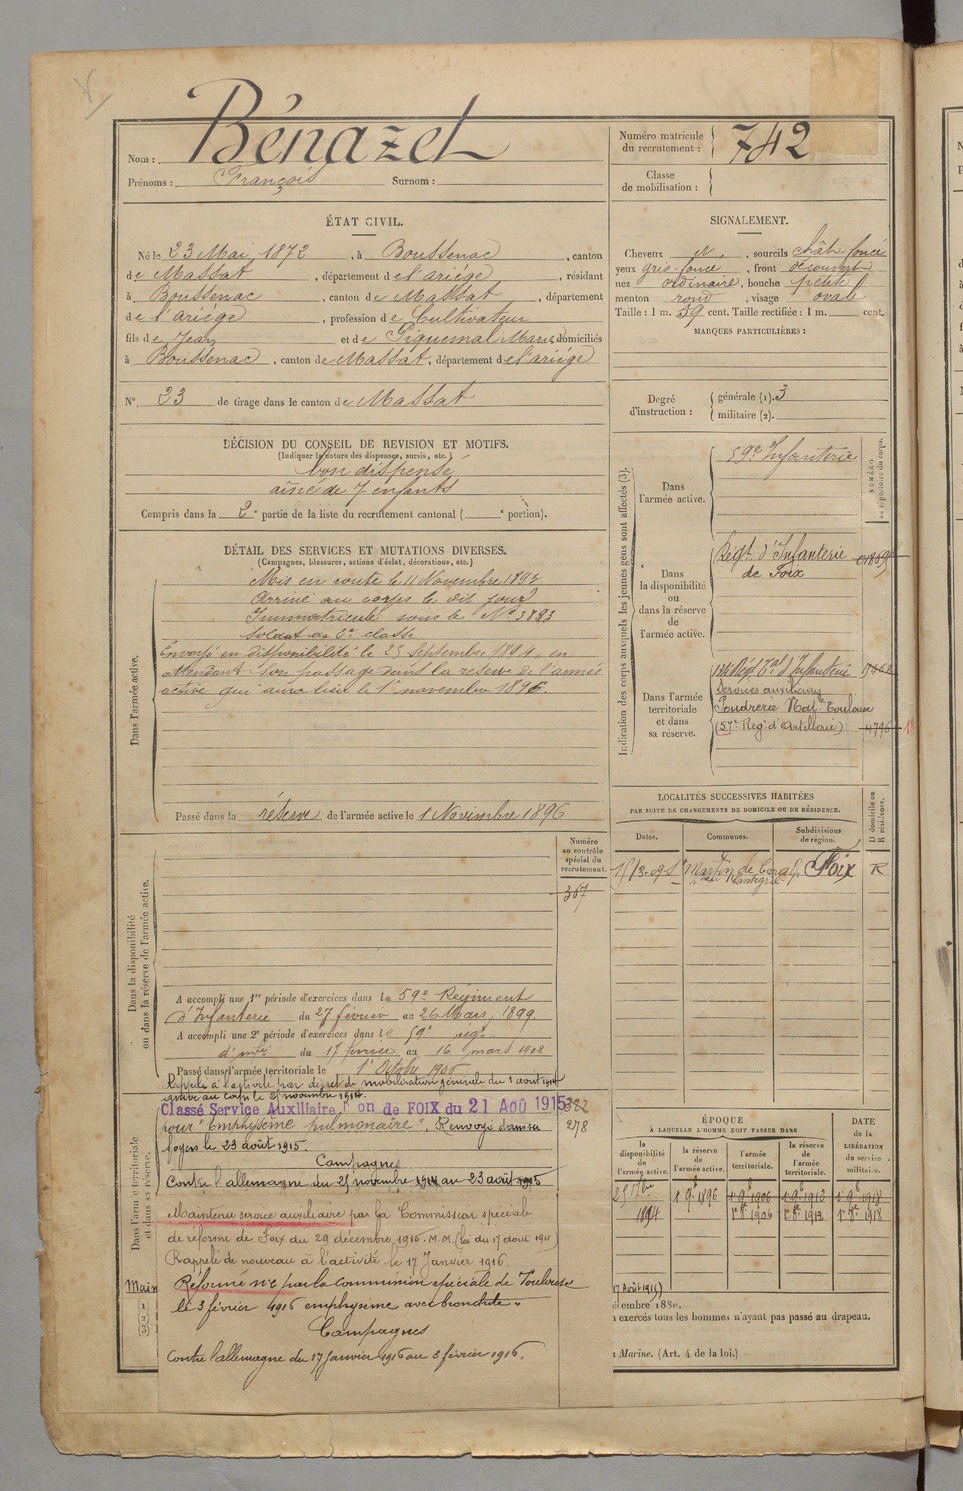 Nom : Bénazet
Prénoms : François Surnom :
Numéro matricule du recrutement : 742
Classe de mobilisation :
ÉTAT CIVIL.
Né le 23 Mai 1872, à Boussenac, canton
de Massat, département de l'ariége, résidant
à Boussenac, canton de Massat, département
de l'ariége, profession de Cultivateur
fils de Jean et de Piquemal Marie, domiciliés
à Boussenac, canton de Massat, département de l'ariége
N° 23 de tirage dans le canton de Massat
SIGNALEMENT.
Cheveux N., sourcils chât-foncé
yeux gris-foncé, front découvert
nez ordinaire, bouche petite
menton rond, visage ovale
Taille : 1 m. 59 cent. Taille rectifiée : 1 m. cent.
MARQUES PARTICULIÈRES :
Degré d'instruction : générale (1). 3
militaire (2).
DÉCISION DU CONSEIL DE REVISION ET MOTIFS.
(Indiquer la nature des dispenses, sursis, etc.)
bon dispensé
aîné de 7 enfants
Compris dans la 2e partie de la liste du recrutement cantonal ( e portion).
DÉTAIL DES SERVICES ET MUTATIONS DIVERSES.
(Campagnes, blessures, actions d'éclat, décorations, etc.)
Dans l'armée active.
Mis en route le 11 Novembre 1893
Arrivé au corps le dit jour
Immatriculé sous le N° 3893
Soldat de 2e classe
Envoyé en disponibilité le 25 septembre 1894, en
attendant son passage dans la réserve de l'armée
active qui aura lieu le 1er novembre 1896.
Passé dans la réserve de l'armée active le 1 Novembre 1896
Indication des corps auxquels les jeunes gens sont affectés (3).
NUMÉRO au répertoire du corps.
Dans l'armée active.
59e Infanterie
Dans la disponibilité ou dans la réserve de l'armée active.
Régt d'Infanterie
de Foix
Dans l'armée territoriale et dans sa réserve.
Services auxiliaires
Poudrerie Nale Toulouse
(57e Régt d'Artillerie) 4796
LOCALITÉS SUCCESSIVES HABITÉES
PAR SUITE DE CHANGEMENTS DE DOMICILE OU DE RÉSIDENCE.
Dates. Communes. Subdivisions de région. D domicile ou R résidence.
St Martin de Caralp Foix R
Dans la disponibilité ou dans la réserve de l'armée active.
Numéro au contrôle spécial du recrutement.
367
A accompli une 1re période d'exercices dans le 59e Régiment
d'Infanterie du 27 février au 26 Mars 1899.
A accompli une 2e période d'exercices dans le 59e régt
d'infie du 17 février au 16 mars 1902
Passé dans l'armée territoriale le 1er Octobre 1906
Dans l'armée territoriale et dans sa réserve.
Rappelé à l'activité par décret de mobilisation générale du 1 août 1914
arrivé au corps le 25 novembre 1914.
Classé Service Auxiliaire Con de FOIX du 21 Aoû 1915 382
pour "Emphysème pulmonaire". Renvoyé dans ses 278
foyers le 23 août 1915.
Campagnes
Contre l'allemagne du 25 novembre 1914 au 23 août 1915
Maintenu service auxiliaire par la Commission spéciale
de réforme de Foix du 29 décembre 1915. M.M. (loi du 17 août 1915)
Rappelé de nouveau à l'activité le 17 Janvier 1916.
Réformé n°2 par la commission spéciale de Toulouse
le 3 février 1916 emphysème avec bronchite "
Campagnes
Contre l'allemagne du 17 janvier 1916 au 3 février 1916.
Main
ÉPOQUE
À LAQUELLE L'HOMME DOIT PASSER DANS
la disponibilité de l'armée active. la réserve de l'armée active. l'armée territoriale. la réserve de l'armée territoriale.
DATE de la LIBÉRATION du service militaire.
25 7bre 1894 1 9b 1896 1er 8b 1906 1er 8b 1912 1er 8b 1918
17 Août 1915)
écembre 1880.
exercés tous les hommes n'ayant pas passé au drapeau.
Marine. (Art. 4 de la loi.)